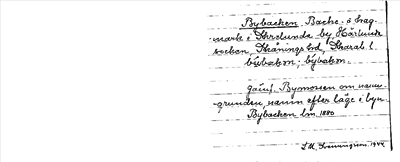 Bybacken. Backe å hag-
mark i Skrelunda by, Hörlunda
socken, Skånings hd, Skarab. l.
býbakən; býbakən.
Jämf. Bymossen om namn-
grunden, namn efter läge i byn.
Bybacken lm. 1880
1944